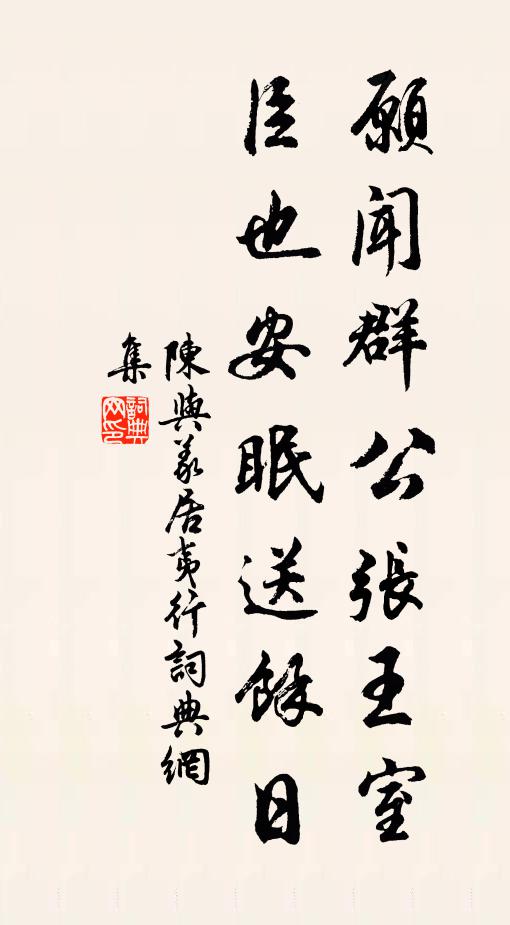 願聞群公張王室
臣也安眠送餘日
陳與義居夷行詞典網
集
詞典网印